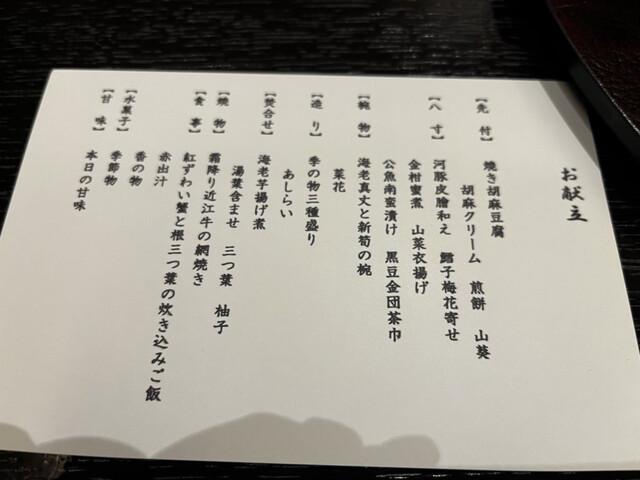 お献立
【先付】 焼き胡麻豆腐
胡麻クリーム 煎餅 山葵
【八寸】 河豚皮膾和え 鱈子梅花寄せ
金柑蜜煮 山菜衣揚げ
公魚南蛮漬け 黒豆金団茶巾
【椀物】 海老真丈と新筍の椀
菜花
【造り】 季の物三種盛り
あしらい
【焚合せ】 海老芋揚げ煮
湯葉含ませ 三つ葉 柚子
【焼物】 霜降り近江牛の網焼き
【食事】 紅ずわい蟹と根三つ葉の炊き込みご飯
赤出汁
香の物
【水菓子】 季節物
【甘味】 本日の甘味